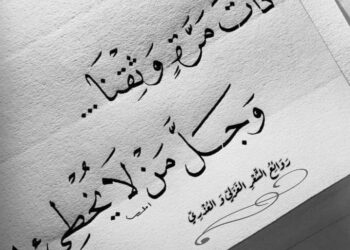 ذات مَرَّةٍ وَثِقْنَا...
وَجَلَّ مَنْ لَا يُخْطِئ
روائع الشعر الغزلي و العذري